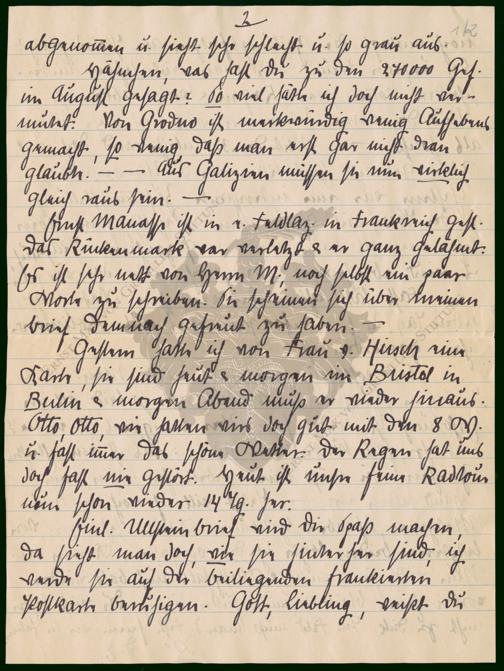 2
142
abgenom̅en u. sieht sehr schlecht u. so grau aus.
Hähnchen, was sagst du zu den 270000 Gef.
im August gesagt? So viel hätte ich doch nicht ver-
mutet. Von Grodno ist merkwürdig wenig Aufhebens
gemacht, so wenig daß man erst gar nicht dran
glaubte. — — Aus Galizien müssen sie nun wirklich
gleich raus sein. —
Ernst Manasse ist in e. Feldlaz. in Frankreich gest.
Das Rückenmark war verletzt & er ganz gelähmt.
Es ist sehr nett von Herrn M., noch selbst ein paar
Worte zu schreiben. Sie scheinen sich über meinen
brief demnach gefreut zu haben. —
Gestern hatte ich von Frau v. Hirsch eine
Karte, sie sind heut & morgen im Bristol in
Berlin & morgen Abend muß er wieder hinaus.
Otto, Otto, wie hatten wirs doch gut mit den 8 W.
u. fast im̅er das schöne Wetter. Der Regen hat uns
doch fast nie gestört. Heut ist unsre feine Radtour
nun schon wieder 14 Tg. her.
Einl. Ullsteinbrief wird dir Spaß machen,
da sieht man doch, wie sie hinterher sind, ich
werde sie auf der beiliegenden frankierten
Postkarte beruhigen. Gott, Liebling, weißt du